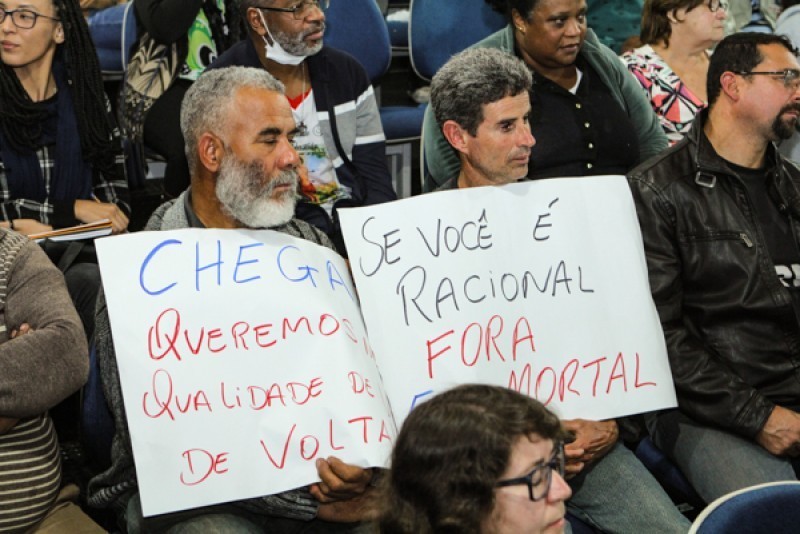 CHEGA
QUEREMOS
QUALIDADE DE
DE VOLTA
SE VOCÊ É
RACIONAL
FORA
MORTAL